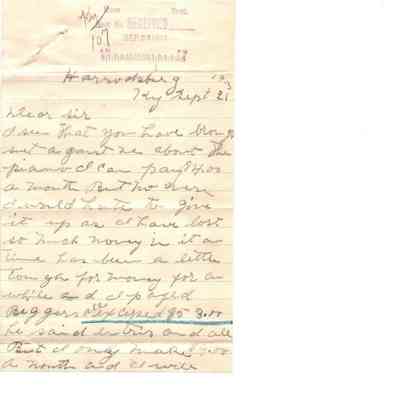 RECEIVED
107
Harrodsburg
Ky Sept 21
Dear Sir
I seen that you have brong
suit against me about the
piano I can pay $4.00
a month But no more
I would hate to give
it up as I have lost
so much money in it as
time has been a little
tough for money for a
while and I payed
Biggers 3.00
he said and all
But I only make
a month and I will